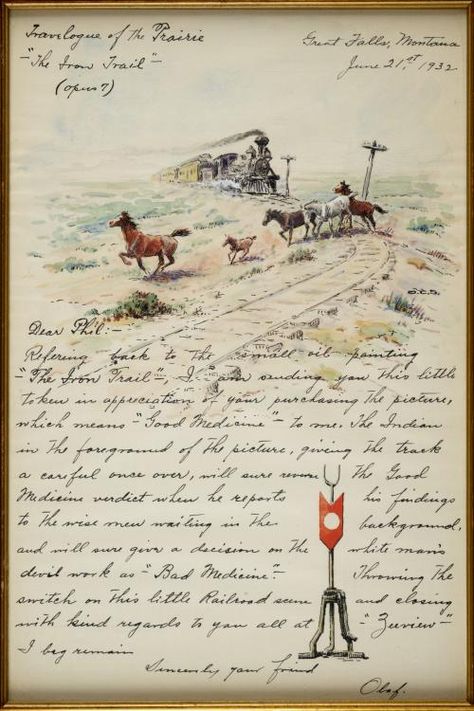 Travelogue of the Prairie
Great Falls, Montana
- "The Iron Trail" -
June 21,st 1932
(opus 7)
O.C.S.
Dear Phil: -
Refering back to the small oil painting
- "The Iron Trail" -, I am sending you this little
token in appreciation of your purchasing the picture,
which means - "Good Medicine" - to me. The Indian
in the foreground of the picture, giving the track
a careful once over, will sure reverse the Good
Medicine verdict when he reports his findings
to the wise men waiting in the background,
and will sure give a decision on the white man's
devil work as - "Bad Medicine". - Throwing the
switch on this little Railroad scene and closing
with kind regards to you all at - "Zeeview" -
I beg remain
Sincerely your friend
Olaf.